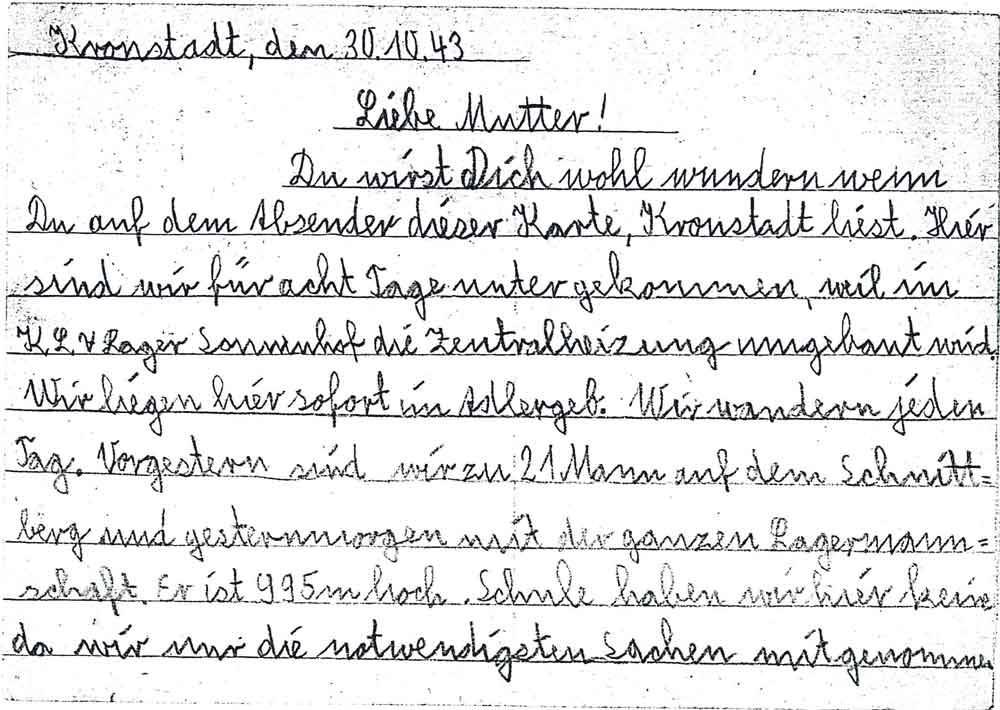 Kronstadt, den 30.10.43
Liebe Mutter!
Du wirst Dich wohl wundern wenn
Du auf dem Absender dieser Karte, Kronstadt liest. Hier
sind wir für acht Tage untergekommen, weil im
K L V Lager Sonnenhof die Zentralheizung umgebaut wird.
Wir liegen hier sofort im Adlergeb. Wir wandern jeden
Tag. Vorgestern sind wir zu 21 Mann auf dem Schnitt=
berg und gesternmorgen mit der ganzen Lagermann=
schaft. Er ist 995m hoch. Schule haben wir hier keine
da wir nur die notwendigsten Sachen mitgenommen